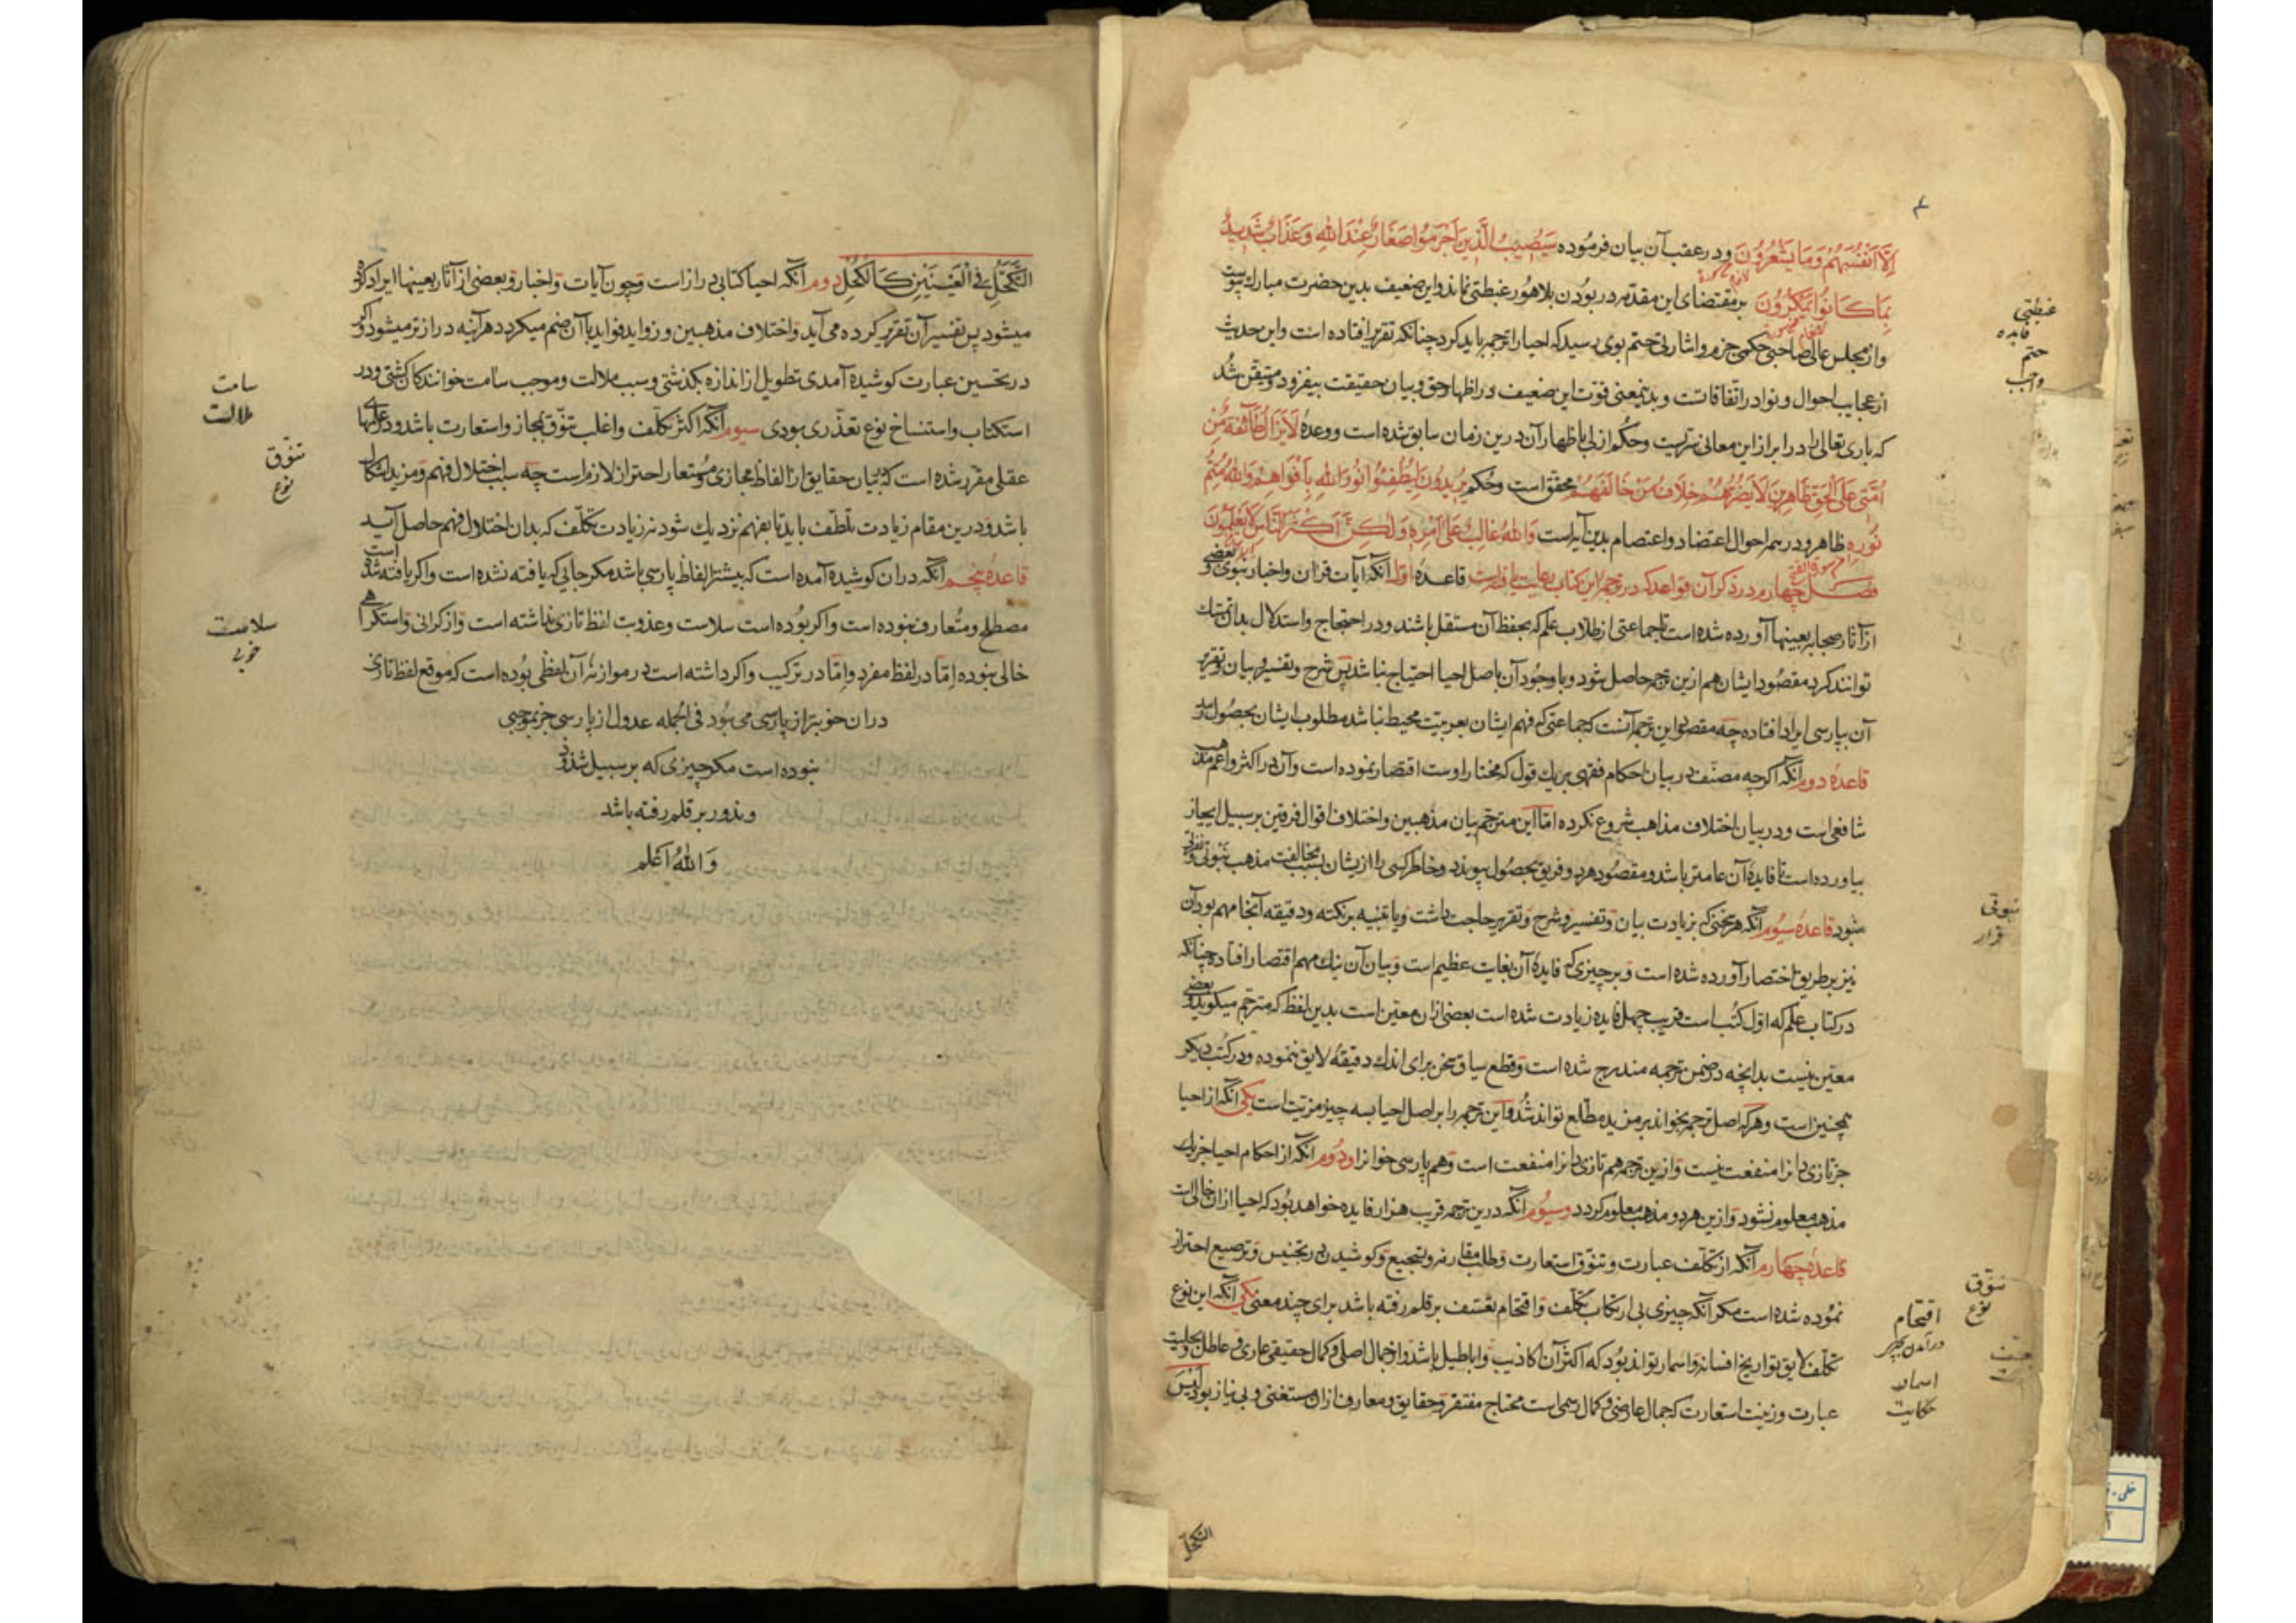 إِلَّا أَنْفُسَهُمْ وَمَا يَشْعُرُونَ ودر عقب آن بیان فرموده سَيُصِيبُ الَّذِينَ أَجْرَمُوا صَغَارٌ عِنْدَ اللهِ وَعَذَابٌ شَدِيدٌ
بِمَا كَانُوا يَمْكُرُونَ بر مقتضای این مقدمه در بودن بلاهور غبطتی نماند واین ضعیف بدین حضرت مبارک پیوست
واز مجلس عالی صاحبی حکمی جزم واشارتی حتم بوی رسید که احیا را ترجمه باید کرد چنانکه تقریر افتاده است واین حدیث
از عجایب احوال ونوادر اتفاقاتست وبدینمعنی قوت این ضعیف در اظهار حق وبیان حقیقت بیفزود ومتیقن شد
که باری تعالی را در ابراز این معانی سریست وحکم ازلی باظهار آن درین زمان سابق شده است ووعدهٔ لَا يَزَالُ طَائِفَةٌ مِنْ
أُمَّتِي عَلَى الْحَقِّ ظَاهِرِينَ لَا يَضُرُّهُمْ خِلَافُ مَنْ خَالَفَهُمْ محقق است وحکم يُرِيدُونَ لِيُطْفِئُوا نُورَ اللهِ بِأَفْوَاهِهِمْ وَاللهُ مُتِمُّ
نُورِهِ ظاهر ودر همه احوال اعتضاد واعتصام بدین آیه است وَاللهُ غَالِبٌ عَلَى أَمْرِهِ وَلَكِنَّ أَكْثَرَ النَّاسِ لَا يَعْلَمُونَ
فصل چهارم در ذکر آن قواعد که در ترجمه این کتاب رعایت یافته است قاعدهٔ اول آنکه آیات قران واخبار نبوی وبعضی
از آثار صحابه بعینها آورده شده است تا جماعتی از طلاب علم که بحفظ آن مستقل باشند ودر احتجاج واستدلال بدان تمسک
توانند کرد مقصود ایشان هم ازین ترجمه حاصل شود وبا وجود آن باصل احیا احتیاج نباشد پس شرح وتفسیر وبیان وتقریر
آن بپارسی ایراد افتاده چه مقصود این ترجمه آنست که جماعتی که فهم ایشان بعربیت محیط نباشد مطلوب ایشان بحصول
قاعدهٔ دوم آنکه اگرچه مصنف در بیان احکام فقهی بریک قول که مختار اوست اقتصار نموده است وآن در اکثر واعم مذهب
شافعی است ودر بیان اختلاف مذاهب شروع نکرده اما این مترجم بیان مذهبین واختلاف اقوال فریقین بر سبیل ایجاز
بیاورده است تا فایدهٔ آن عامتر باشد ومقصود هر دو فریق بحصول پیوندد وخاطر کسی را از ایشان بسبب مخالفت مذهب نبوتی ونفرتی
نبود قاعدهٔ سیوم آنکه هر سخنی که بزیادت بیان وتفسیر وشرح وتقریر حاجت داشت ویا تنبیه بر نکته ودقیقه آنجا مهم بود آن
نیز بر طریق اختصار آورده شده است وبر چیزی که فایدهٔ آن بغایت عظیم است وبیان آن نیک مهم اقتصار افتاده چنانکه
در کتاب علم که اول کتب است قریب چهل فایده زیادت شده است بعضی ازان معین است بدین لفظ که مترجم میگوید وبعضی
معین نیست بدانچه در ضمن ترجمه مندرج شده است وقطع سیاقت سخن برای اندک دقیقه لایق ننموده ودر کتب دیگر
همچنین است وهر که اصل ترجمه بخواند بر مزید مطلع تواند شد واین ترجمه را بر اصل احیا بسه چیز مزیت است یکی آنکه از احیا
جز تازی دان را منفعت نیست وازین ترجمه هم تازی دان را منفعت است وهم پارسی خوان را ودوم آنکه از احکام احیا جز یک
مذهب معلوم نشود وازین هر دو مذهب معلوم گردد وسیوم آنکه درین ترجمه قریب هزار فایده خواهد بود که احیا ازان خالی است
قاعدهٔ چهارم آنکه از تکلف عبارت وتنوق استعارت وطلب مقارنه وتسجیع وکوشیدن در تجنیس وترصیع احتراز
نموده شده است مگر آنکه چیزی بی ارتکاب تکلف واقتحام تعسف بر قلم رفته باشد برای چند معنی یکی آنکه این نوع
تکلف لایق تواریخ افسانه واسمار تواند بود که اکثر آن اکاذیب واباطیل باشد واز جمال اصلی وکمال حقیقی عاری وعاطل وبحلیت
عبارت وزینت استعارت که جمال عارضی وکمال رسمی است محتاج مفتقر وحقایق ومعارف ازان مستغنی وبی نیاز بود لیس
التکحل
غبطتی
فایده
حتم
واجب
نبوتی
تنوق
نوع
اقتحام
اسمار
حکایت
التَّكَحُّلُ فِي الْعَيْنَيْنِ كَالْكَحَلِ دوم آنکه احیا کتابی دراز است وچون آیات واخبار وبعضی از آثار بعینها ایراد کرده
میشود پس تفسیر آن تقریر کرده می آید واختلاف مذهبین وزواید فواید با آن ضم میگردد هر آینه دراز تر میشود واگر
در تحسین عبارت کوشیده آمدی تطویل از اندازه بگذشتی وسبب ملالت وموجب سآمت خوانندگان گشتی ودر
استکتاب واستنساخ نوع تعذری بودی سیوم آنکه اکثر تکلف واغلب تنوق بمجاز واستعارت باشد ودر علمهای
عقلی مقرر شده است که در بیان حقایق از الفاظ مجازی ومستعار احتراز لازم است چه سبب اختلال فهم ومزید اشکال
باشد ودرین مقام زیادت تلطف باید تا بفهم نزدیک شود نه زیادت تکلف که بدان اختلال فهم حاصل آید
قاعدهٔ پنجم آنکه دران کوشیده آمده است که بیشتر الفاظ پارسی باشد مگر جایی که یافته نشده است واگر یافته شده است
مصطلح ومتعارف نبوده است واگر بوده است سلاست وعذوبت لفظ تازی نداشته است واز گرانی واستکراهی
خالی نبوده اما در لفظ مفرد واما در ترکیب واگر داشته است در موازنهٔ آن لفظی بوده است که موقع لفظ تازی
دران خوبتر از پارسی می بود فی الجمله عدول از پارسی جز بموجبی
نبوده است مگر چیزی که بر سبیل شذوذ
وندور بر قلم رفته باشد
وَاللهُ أَعْلَم
سامت
ملالت
تنوق
نوع
سلاست
خوبی